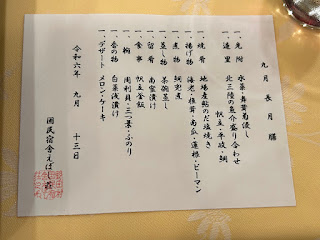 九月 長月膳
一、先附 水菜・舞茸お浸し
一、造里 北三陸の魚介盛り合わせ
帆立・平・蛸・鯛
一、焼肴 地場産鮭のだ塩焼き
一、揚げ物 海老・椎茸・南瓜・蓮根・ピーマン
一、煮物 鯛兜煮
一、蒸し物 茶碗蒸し
一、留肴 南蛮漬け
一、食事 帆立釜飯
一、椀 周利貝・三つ葉・ふのり
一、香の物 白菜浅漬け
一、デザート メロン・ケーキ
令和六年 九月 十三日
国民宿舎えぼし荘